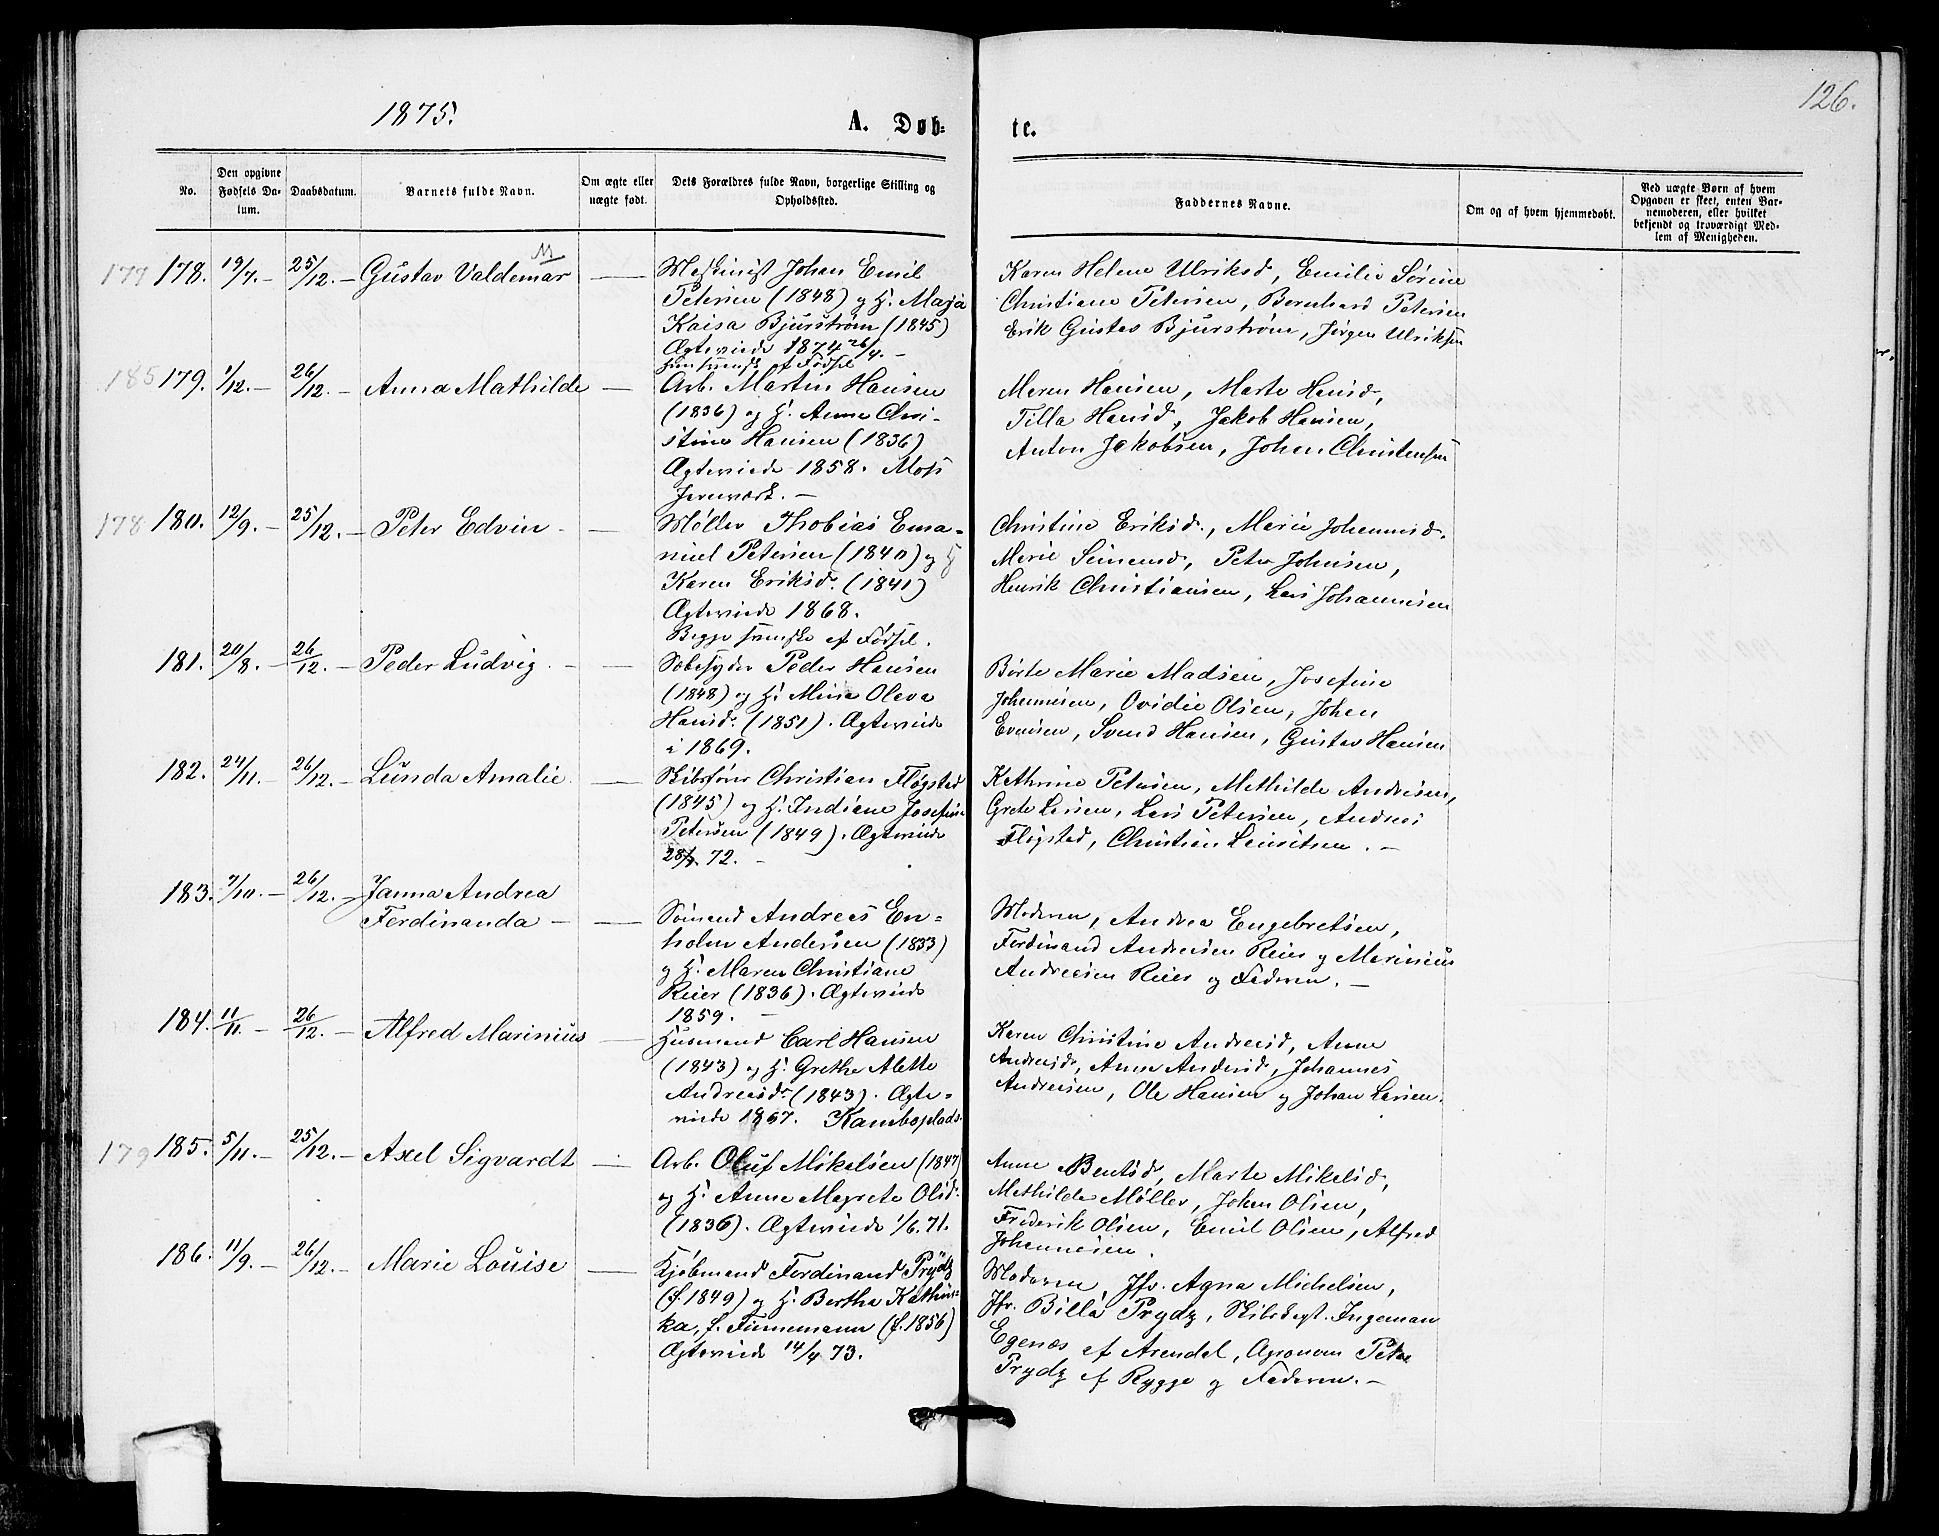 126.
1875.
A. Døb-
te.
No.
Den opgivne
Fødsels Da-
tum.
Daabsdatum.
Barnets fulde Navn.
Om ægte eller
uægte født.
Dets Forældres fulde Navn, borgerlige Stilling og
Opholdssted.
Faddernes Navne.
Om og af hvem hjemmedøbt.
Ved uægte Børn af hvem
Opgaven er skeet, enten Bar-
nemoderen, eller hvilket
bekjendt og troværdigt Med-
lem af Menigheden.
177 178. 19/7. — 25/12. — Gustav Valdemar —
Maskinist Johan Emil
Petersen (1848) og H. Maja
Kaisa Bjurstrøm (1845)
Ægteviede 1874 26/4. —
Hun svensk af Fødsel
Karen Helene Ulriksd, Emilie Sørine
Christiane Petersen, Bernhard Petersen
Erik Gustav Bjurstrøm, Jørgen Ulriksen
185 179. 1/12. — 26/12. — Anna Mathilde —
Arb. Martin Hansen
(1836) og H. Anne Chri-
stine Hansen (1836)
Ægteviede 1858. Moss
Jernværk. —
Maren Hansen, Marte Hansd,
Tilla Hansd, Jakob Hansen,
Anton Jakobsen, Johan Christensen
178 180. 12/9. — 25/12. — Peter Edvin —
Møller Thobias Ema-
nuel Petersen (1840) og H
Karen Eriksd. (1841)
Ægteviede 1868.
Begge svenske af Fødsel.
Christine Eriksd., Marie Johannesd.
Marie Simensd, Peter Johnsen,
Henrik Christiansen, Lars Johannesen
181. 20/8. — 26/12. — Peder Ludvig. —
Sæbesyder Peder Hansen
(1848) og H. Mina Oleva
Hansd. (1851). Ægteviede
i 1869.
Børte Marie Madsen, Josefine
Johannesen, Ovidie Olsen, Johan
Evensen, Svend Hansen, Gustav Hansen
182. 24/11. — 26/12. — Lunda Amalie. —
Skibsfører Christian Fløgstad
(1845) og H. Indiane Josefine
Petersen (1849). Ægteviede
28/7. 72. —
Kathrine Petersen, Mathilde Andresen,
Grete Larsen, Lars Petersen, Andreas
Fløgstad, Christian Lauritsen. —
183. 7/10. — 26/12. — Janna Andrea
Ferdinanda — —
Sømand Andreas En-
holm Andersen (1833)
og H. Maren Christiane
Reier (1836). Ægteviede
1859. —
Moderen, Andrea Engebretsen,
Ferdinand Andreasen Reier og Marinius
Andreasen Reier og Faderen. —
184. 11/11. — 26/12. — Alfred Marinius —
Husmand Carl Hansen
(1843) og H. Grethe Alette
Andreasd. (1843). Ægte-
viede 1867. Kamboplads.
Karen Christine Andreasd, Anne
Andreasd, Anne Andersd, Johannes
Andreasen, Ole Hansen og Johan Larsen.
179 185. 5/11. — 25/12. — Axel Sigvardt —
Arb. Oluf Mikelsen (1847)
og H. Anne Magrete Olsd.
(1836). Ægteviede 1/6. 71.
Anne Bentsd, Marte Mikelsd,
Mathilde Møller, Johan Olsen,
Frederik Olsen, Emil Olsen, Alfred
Johannesen.
186. 11/9. — 26/12. — Marie Louise —
Kjøbmand Ferdinand Prydz
(f. 1849) og H. Bertha Kathin-
ka, f. Finnemann (f. 1856)
Ægteviede 14/4 73.
Moderen, Jfr. Agna Michelsen,
Jfr. Billa Prydz, Skibskapt. Ingeman
Egenæs af Arendal, Agronom Peter
Prydz af Rygge og Faderen. —